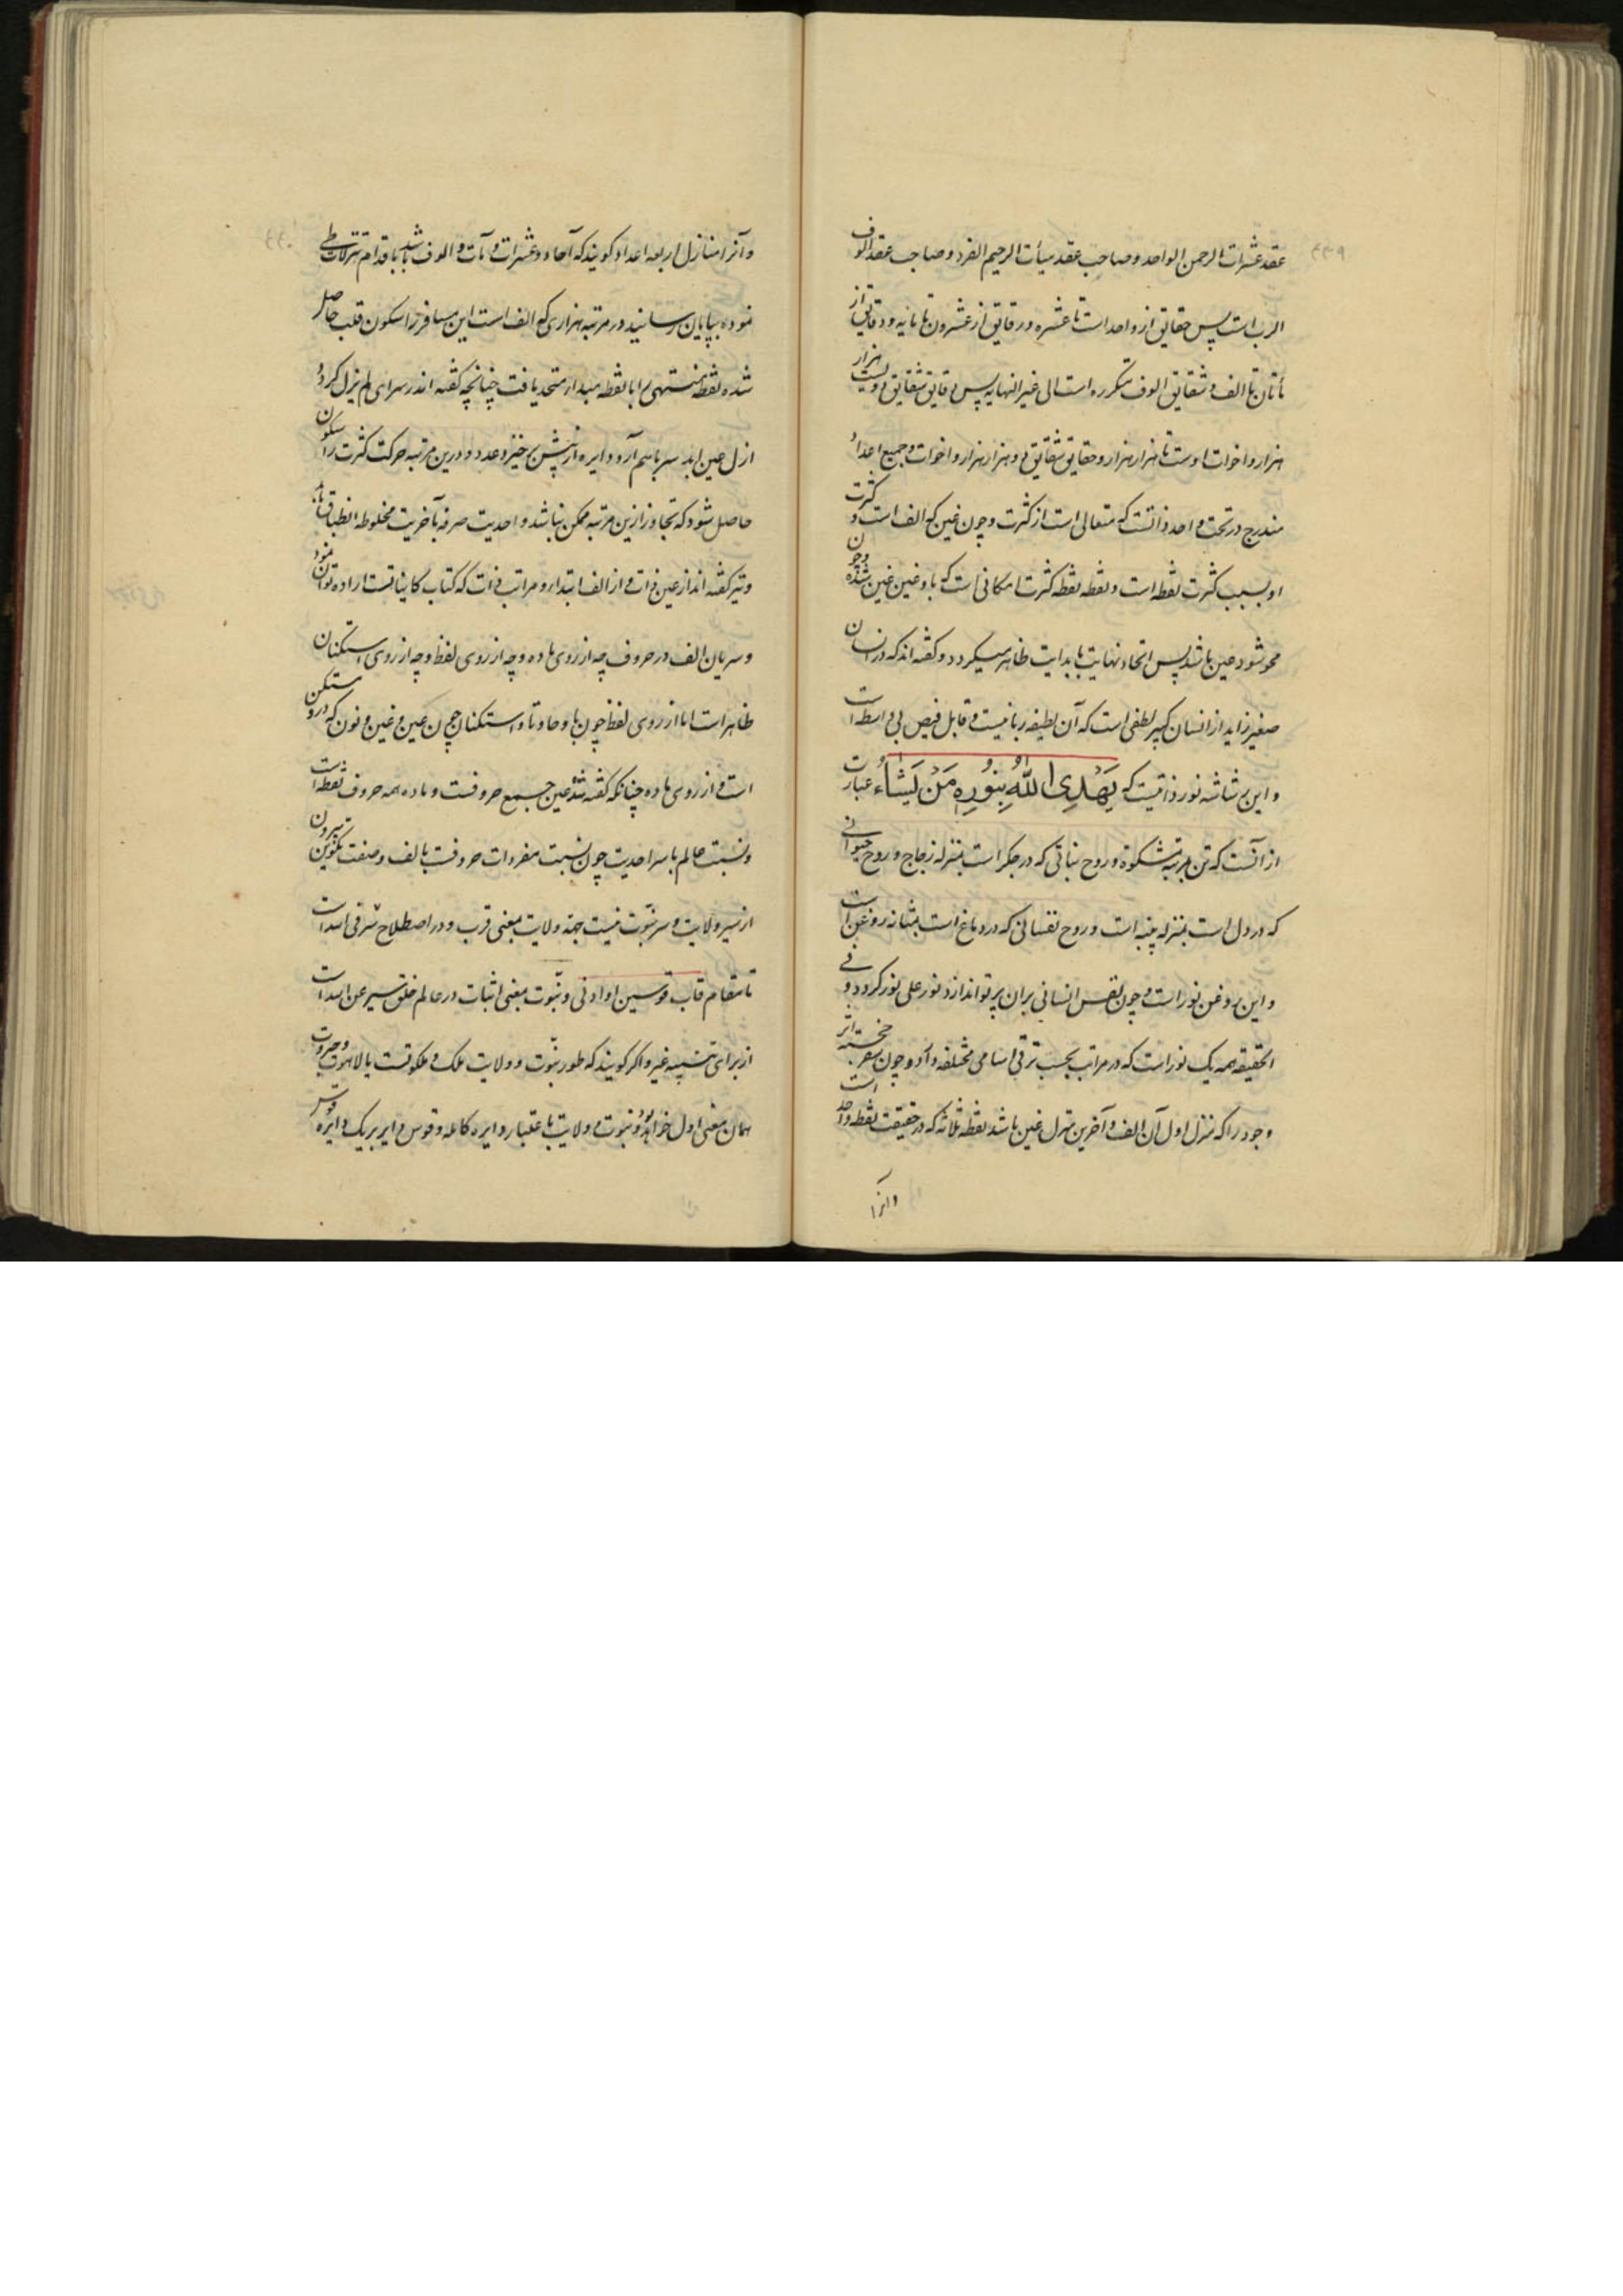 عقد عشرات الرحمن الواحد و صاحب عقد میأت الرحیم الفرد و صاحب عقد الوف
الرب است پس حقایق از واحد است تا عشره و رقایق از عشرون تا مایه و دقایق از
مأتان تا الف و شقایق الوف متکرره است الی غیر النهایه پس دقایق شقایق دویست هزار
هزار و اخوات اوست تا هزار هزار و حقایق شقایق وی هزار هزار و اخوات و جمیع اعداد
مندرج در تحت واحد ذاتست که متعالی است از کثرت و چون غین که الف است و کثرت
او بسبب کثرت نقطه است و نقطه نقطه کثرت امکانی است که باو غین غین شده و چون
محو شود عین باشد پس اتحاد نهایت با بدایت ظاهر میگردد و گفته اند که در انسان
صغیر زاید از انسان کبیر لطفی است که آن لطیفه ربانیست و قابل فیض بی واسطه است
و این رشاشه نور ذاتیست که یَهْدِی اللّٰهُ بِنُورِهِ مَنْ یَشَاءُ عبارت
از آنست که تن بمرتبه مشکوة و روح نباتی که در جگر است بمنزله زجاج و روح حیوانی
که در دل است بمنزله پنبه است و روح نفسانی که در دماغ است بمثابه روغن است
و این روغن نور است و چون نفس انسانی بران پرتو اندازد نور علی نور گردد و فی
الحقیقه همه یک نور است که در مراتب بحسب ترقی اسامی مختلفه دارد و چون سفر خجسته اثر
وجود را که منزل اول آن الف و آخرین منزل غین باشد نقطه ثلاثه که در حقیقت نقطه واحد است
و آنرا
و آنرا منازل اربعه اعداد گویند که آحاد و عشرات و مآت و الوف باشد باقدام تنزلات طی
نموده بپایان رسانید و در مرتبه هزاری که الف است این مسافر را سکون قلب حاصل
شده نقطه منتهی را با نقطه مبدا متحد یافت چنانچه گفته اند در سرای لم یزل گردد
ازل عین ابد سر باهم آرد دایره از پیش برخیزد عدد و درین مرتبه حرکت کثرت را سکون
حاصل شود که تجاوز ازین مرتبه ممکن نباشد و احدیت صرفه بآخریت مخلوطه انطباق یابد
و نیز گفته اند از عین ذات و از الف ابتدا و مراتب ذات که کتاب کایناتست اراده توان نمود
و سریان الف در حروف چه از روی ماده و چه از روی لفظ و چه از روی استکنان
ظاهر است اما از روی لفظ چون با و حا و تا و استکنان چون عین و غین و نون که درو مستکن
است و از روی ماده چنانکه گفته شد عین جمیع حروفست و ماده همه حروف نقطه است
و نسبت عالم باسر احدیت چون نسبت مفردات حروفست بالف و صفت تکوین بیرون
از سیر ولایت و سر نبّوت نیست چه ولایت بمعنی قرب و در اصطلاح ترقی است
تا مقام قاب قوسین او ادنی و نبّوت بمعنی اثبات در عالم خلق سیر عن الله است
از برای تنبیه غیر و اگر گویند که طور نبّوت و ولایت ملک و ملکوتست یا لاهوت و جبروت
همان معنی اول خواهد بود و نبوت و ولایت باعتبار دایره کامله و قوس دایر بر یک دایره